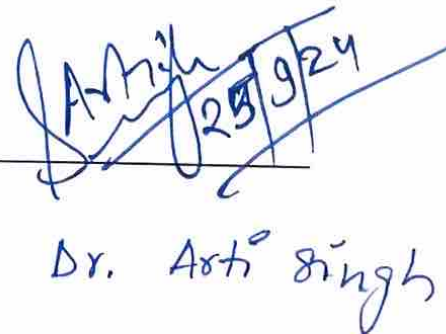 25/9/24
Dr. Arti Singh